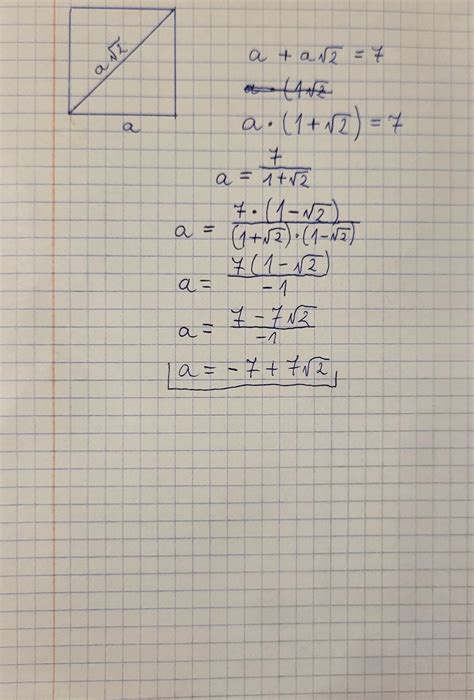 a√2
a
a + a√2 = 7
a · (1√2
a · (1+√2) = 7
a = 7/(1+√2)
a = 7·(1-√2)/(1+√2)·(1-√2)
a = 7(1-√2)/-1
a = 7-7√2/-1
a = -7+7√2